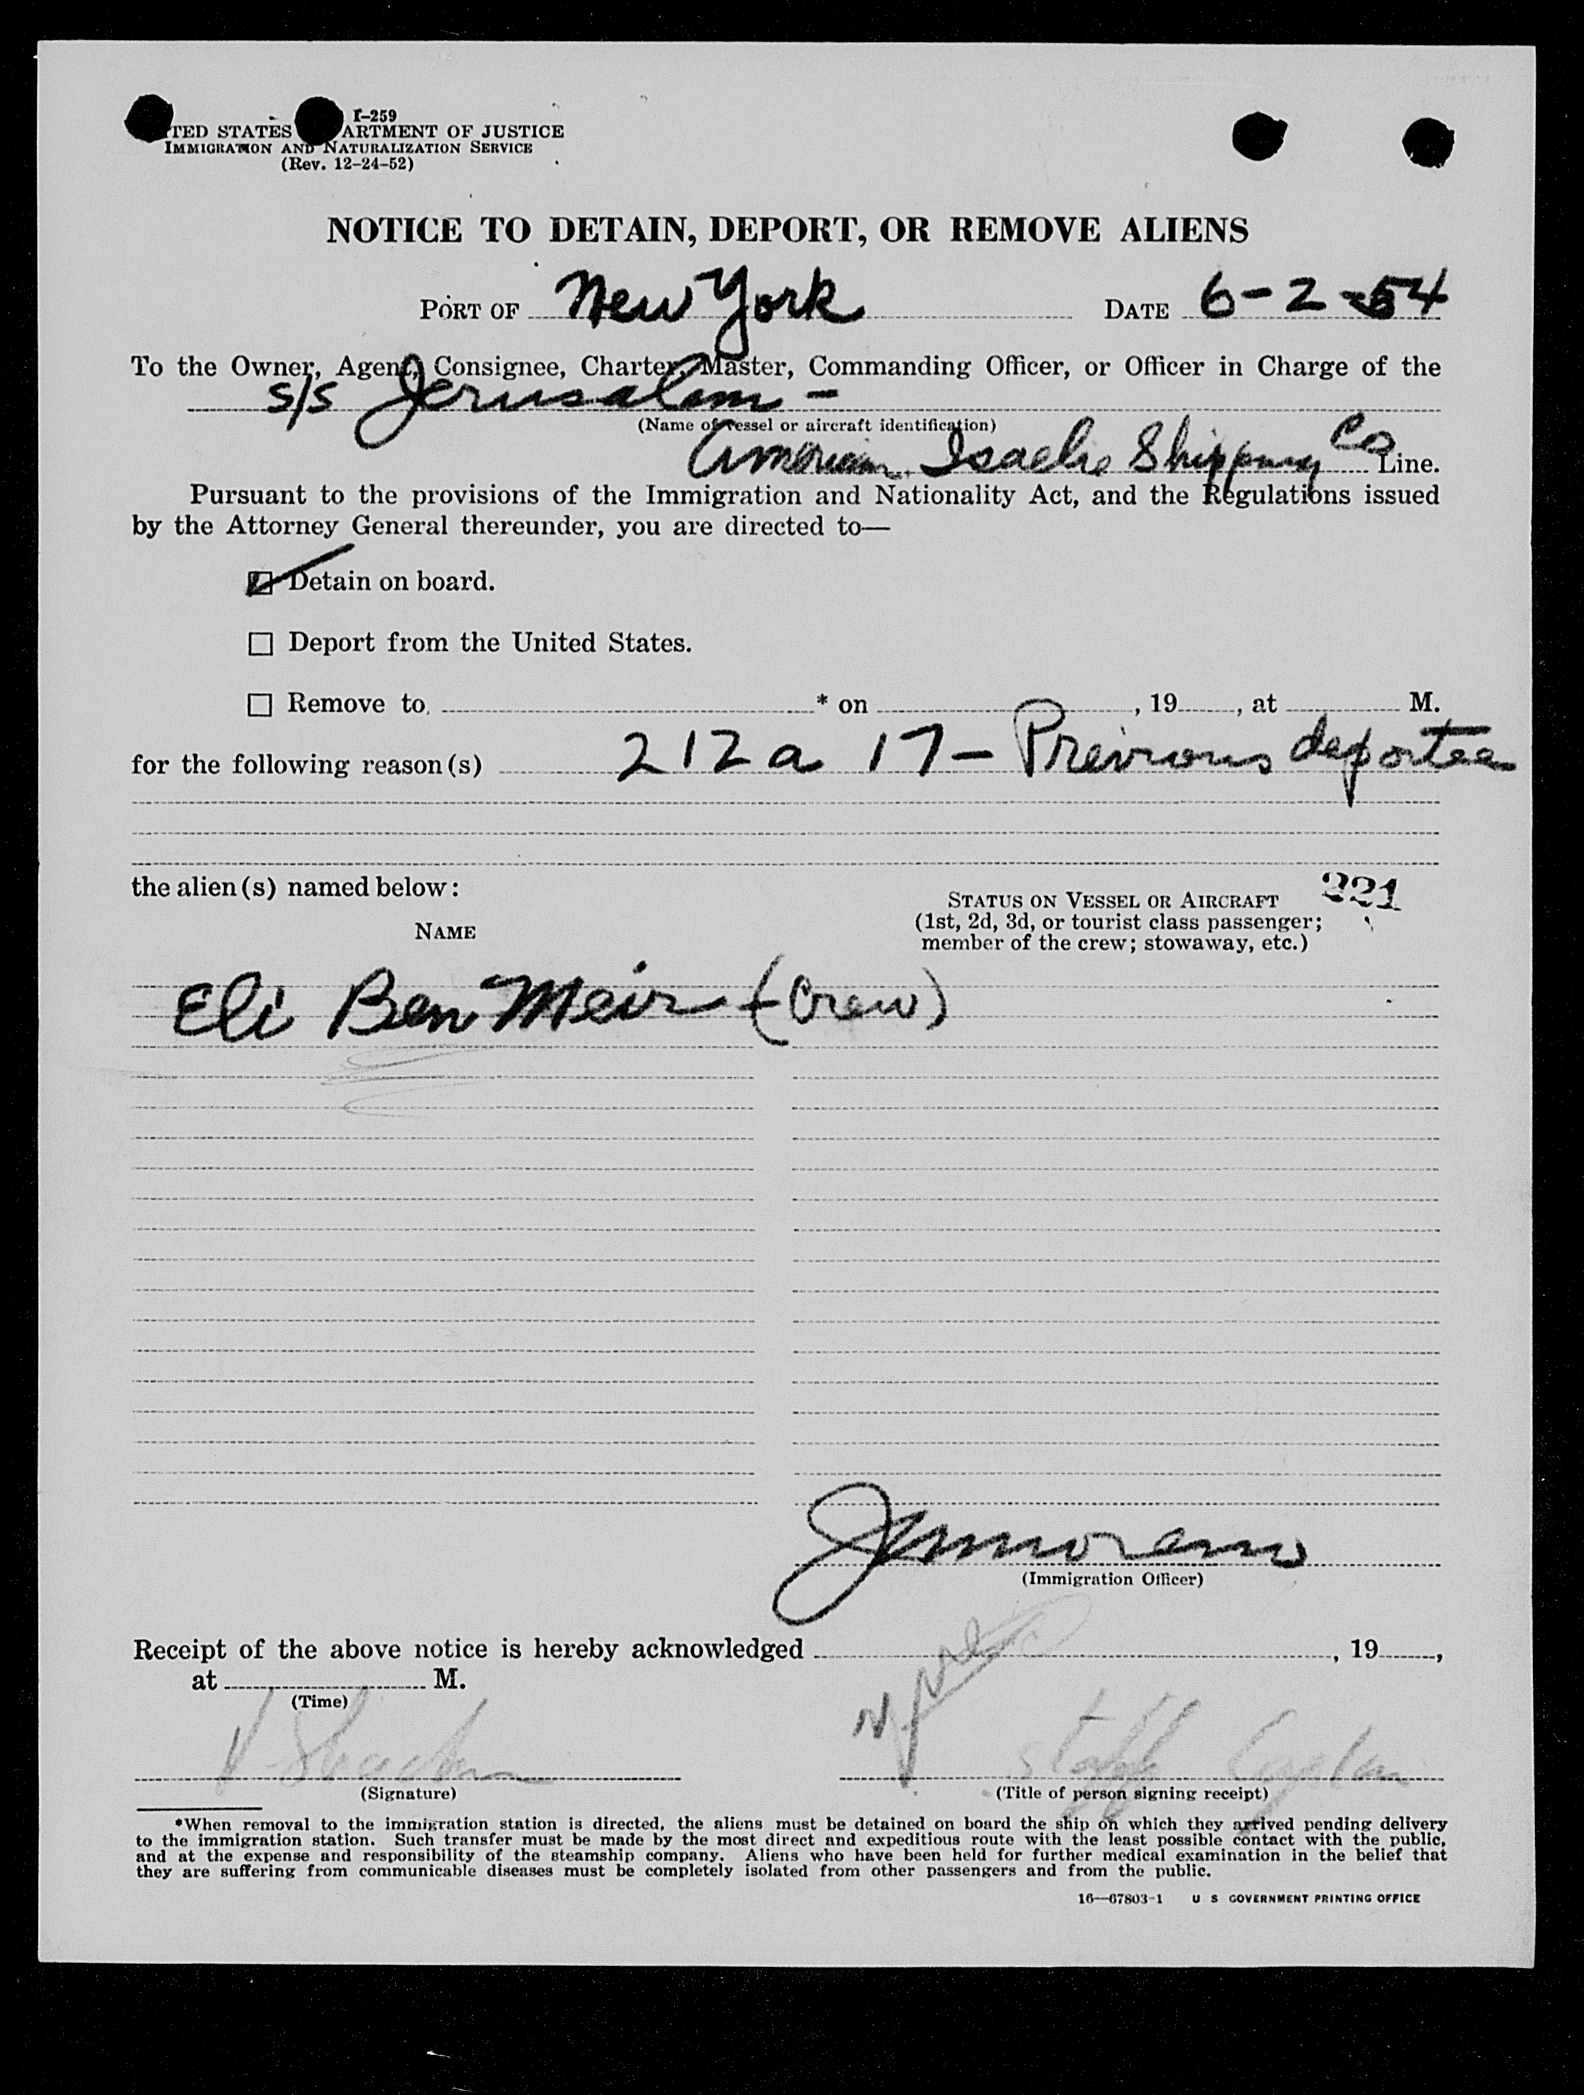 I-259
TED STATES ARTMENT OF JUSTICE
IMMIGRATION AND NATURALIZATION SERVICE
(Rev. 12-24-52)
NOTICE TO DETAIN, DEPORT, OR REMOVE ALIENS
PORT OF New York DATE 6-2-54
To the Owner, Agent, Consignee, Charter, Master, Commanding Officer, or Officer in Charge of the
S/S Jerusalem -
(Name of vessel or aircraft identification)
American Isaelie Shipping Co Line.
Pursuant to the provisions of the Immigration and Nationality Act, and the Regulations issued
by the Attorney General thereunder, you are directed to—
Detain on board.
☐ Deport from the United States.
☐ Remove to * on , 19 , at M.
for the following reason(s) 212 a 17 - Previous deportee
the alien(s) named below:
221
NAME
STATUS ON VESSEL OR AIRCRAFT
(1st, 2d, 3d, or tourist class passenger;
member of the crew; stowaway, etc.)
Eli Ben Meir - (Crew)
(Immigration Officer)
Receipt of the above notice is hereby acknowledged , 19 ,
at M.
(Time)
Staff
(Signature)
(Title of person signing receipt)
*When removal to the immigration station is directed, the aliens must be detained on board the ship on which they arrived pending delivery
to the immigration station. Such transfer must be made by the most direct and expeditious route with the least possible contact with the public,
and at the expense and responsibility of the steamship company. Aliens who have been held for further medical examination in the belief that
they are suffering from communicable diseases must be completely isolated from other passengers and from the public.
16—67803-1 U S GOVERNMENT PRINTING OFFICE